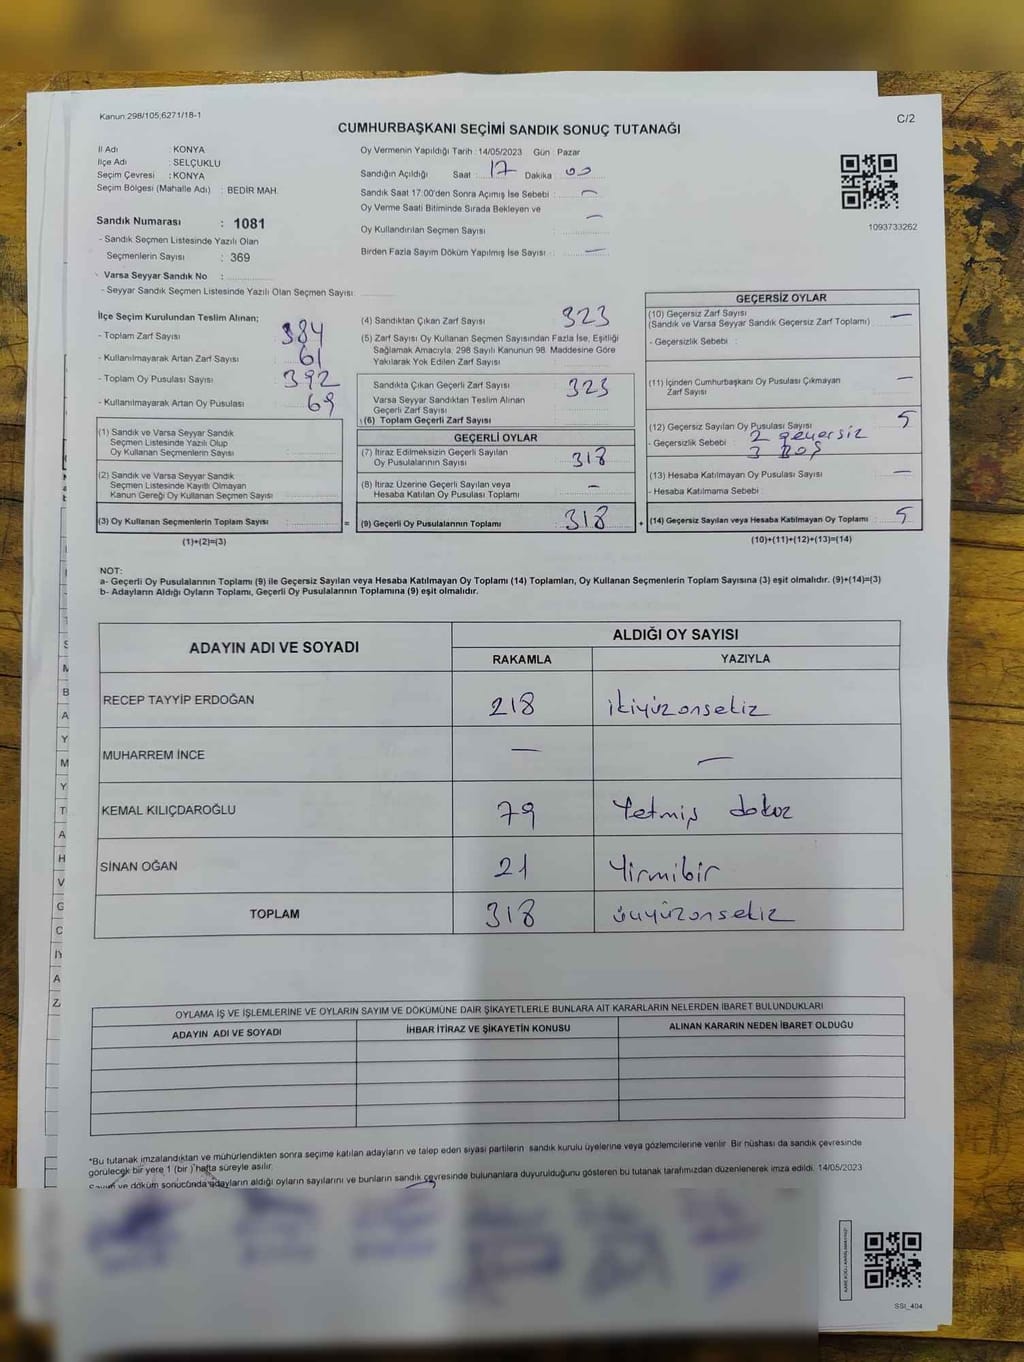 Kanun:298/105;6271/18-1
C/2
CUMHURBAŞKANI SEÇİMİ SANDIK SONUÇ TUTANAĞI
İl Adı : KONYA
İlçe Adı : SELÇUKLU
Seçim Çevresi : KONYA
Seçim Bölgesi (Mahalle Adı) : BEDİR MAH.
Oy Vermenin Yapıldığı Tarih : 14/05/2023 Gün : Pazar
Sandığın Açıldığı Saat : 17 Dakika : 00
Sandık Saat 17:00'den Sonra Açımış İse Sebebi : —
Oy Verme Saati Bitiminde Sırada Bekleyen ve —
Oy Kullandırılan Seçmen Sayısı :
Birden Fazla Sayım Döküm Yapılmış İse Sayısı : —
1093733262
Sandık Numarası : 1081
- Sandık Seçmen Listesinde Yazılı Olan
Seçmenlerin Sayısı : 369
Varsa Seyyar Sandık No :
- Seyyar Sandık Seçmen Listesinde Yazılı Olan Seçmen Sayısı:
İlçe Seçim Kurulundan Teslim Alınan;
- Toplam Zarf Sayısı 384
- Kullanılmayarak Artan Zarf Sayısı 61
- Toplam Oy Pusulası Sayısı 392
- Kullanılmayarak Artan Oy Pusulası 69
(1) Sandık ve Varsa Seyyar Sandık
Seçmen Listesinde Yazılı Olup
Oy Kullanan Seçmenlerin Sayısı :
(2) Sandık ve Varsa Seyyar Sandık
Seçmen Listesinde Kayıtlı Olmayan
Kanun Gereği Oy Kullanan Seçmen Sayısı :
(3) Oy Kullanan Seçmenlerin Toplam Sayısı :
(1)+(2)=(3)
=
(4) Sandıktan Çıkan Zarf Sayısı 323
(5) Zarf Sayısı Oy Kullanan Seçmen Sayısından Fazla İse, Eşitliği
Sağlamak Amacıyla, 298 Sayılı Kanunun 98. Maddesine Göre
Yakılarak Yok Edilen Zarf Sayısı
Sandıkta Çıkan Geçerli Zarf Sayısı 323
Varsa Seyyar Sandıktan Teslim Alınan
Geçerli Zarf Sayısı
(6) Toplam Geçerli Zarf Sayısı
GEÇERLİ OYLAR
(7) İtiraz Edilmeksizin Geçerli Sayılan
Oy Pusulalarının Sayısı 318
(8) İtiraz Üzerine Geçerli Sayılan veya
Hesaba Katılan Oy Pusulası Toplamı —
(9) Geçerli Oy Pusulalarının Toplamı 318
+
GEÇERSİZ OYLAR
(10) Geçersiz Zarf Sayısı —
(Sandık ve Varsa Seyyar Sandık Geçersiz Zarf Toplamı)
- Geçersizlik Sebebi :
(11) İçinden Cumhurbaşkanı Oy Pusulası Çıkmayan
Zarf Sayısı —
(12) Geçersiz Sayılan Oy Pusulası Sayısı 5
- Geçersizlik Sebebi : 2 geçersiz
3 Boş
(13) Hesaba Katılmayan Oy Pusulası Sayısı —
- Hesaba Katılmama Sebebi :
(14) Geçersiz Sayılan veya Hesaba Katılmayan Oy Toplamı 5
(10)+(11)+(12)+(13)=(14)
NOT:
a- Geçerli Oy Pusulalarının Toplamı (9) ile Geçersiz Sayılan veya Hesaba Katılmayan Oy Toplamı (14) Toplamları, Oy Kullanan Seçmenlerin Toplam Sayısına (3) eşit olmalıdır. (9)+(14)=(3)
b- Adayların Aldığı Oyların Toplamı, Geçerli Oy Pusulalarının Toplamına (9) eşit olmalıdır.
ADAYIN ADI VE SOYADI
ALDIĞI OY SAYISI
RAKAMLA YAZIYLA
RECEP TAYYİP ERDOĞAN 218 ikiyüzonsekiz
MUHARREM İNCE — —
KEMAL KILIÇDAROĞLU 79 Yetmiş dokuz
SİNAN OĞAN 21 Yirmibir
TOPLAM 318 üçyüzonsekiz
OYLAMA İŞ VE İŞLEMLERİNE VE OYLARIN SAYIM VE DÖKÜMÜNE DAİR ŞİKAYETLERLE BUNLARA AİT KARARLARIN NELERDEN İBARET BULUNDUKLARI
ADAYIN ADI VE SOYADI İHBAR İTİRAZ VE ŞİKAYETİN KONUSU ALINAN KARARIN NEDEN İBARET OLDUĞU
*Bu tutanak imzalandıktan ve mühürlendikten sonra seçime katılan adayların ve talep eden siyasi partilerin sandık kurulu üyelerine veya gözlemcilerine verilir. Bir nüshası da sandık çevresinde
görülecek bir yere 1 (bir) hafta süreyle asılır.
Sayım ve döküm sonucunda adayların aldığı oyların sayılarını ve bunların sandık çevresinde bulunanlara duyurulduğunu gösteren bu tutanak tarafımızdan düzenlenerek imza edildi. 14/05/2023
SSI_404